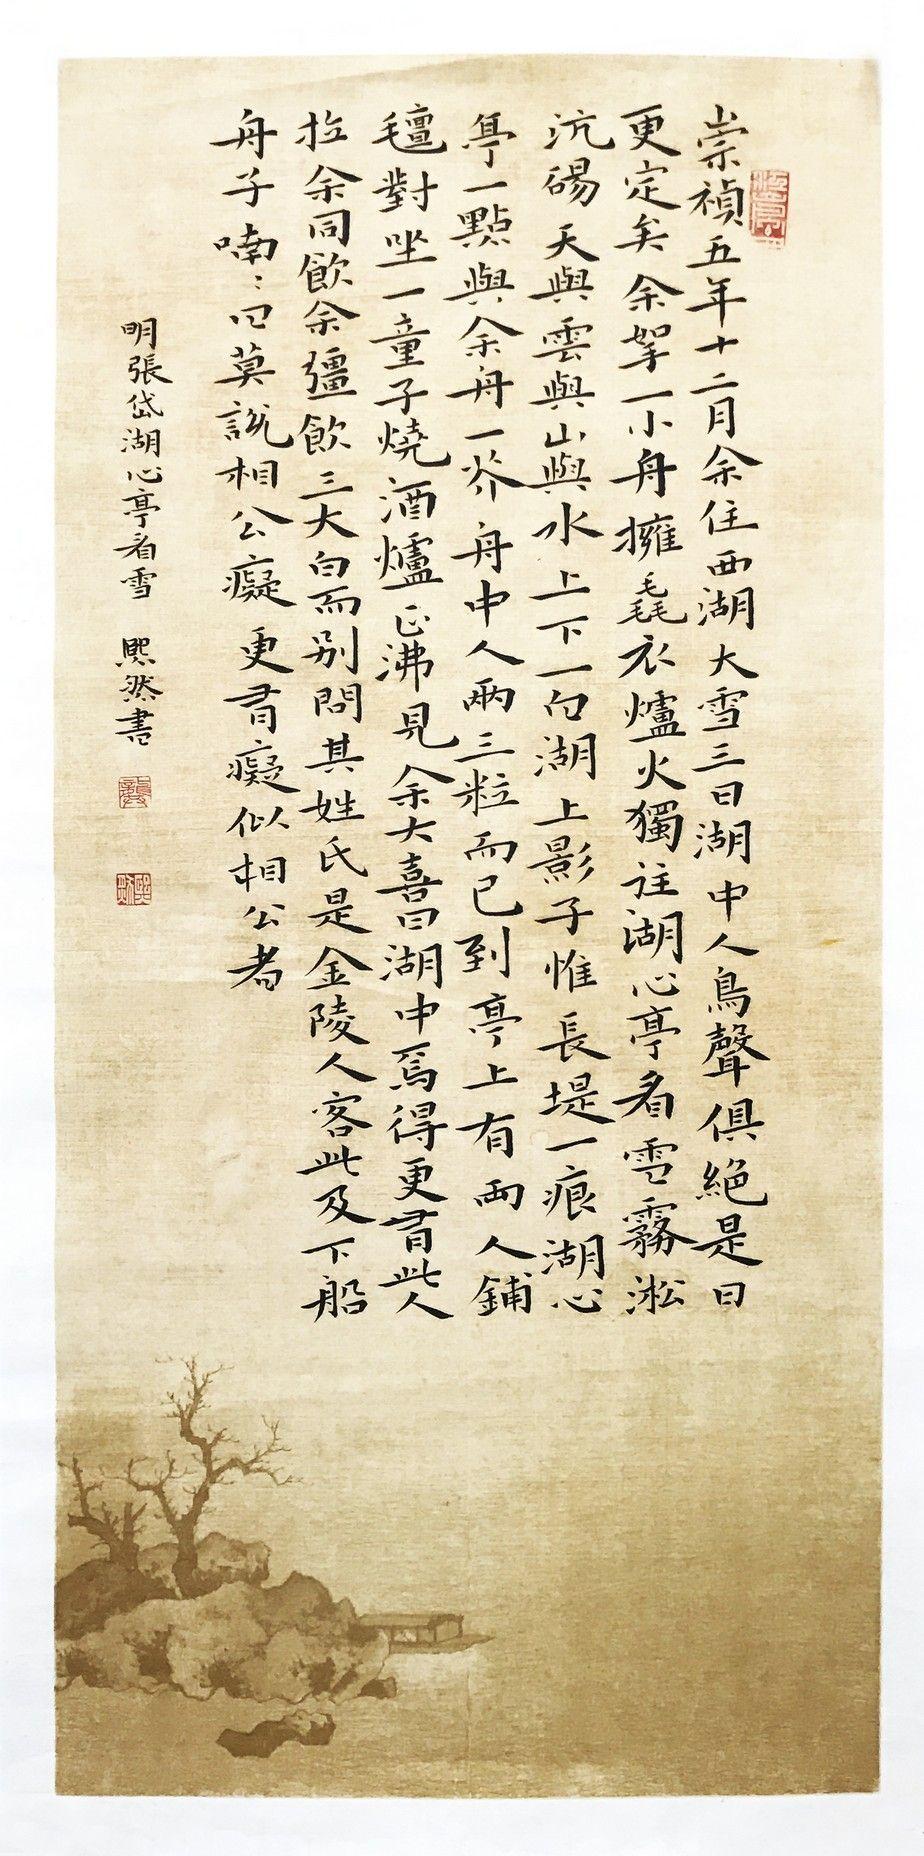 崇禎五年十二月余住西湖大雪三日湖中人鳥聲俱絕是日
更定矣余拏一小舟擁毳衣爐火獨往湖心亭看雪霧淞
沆碭天與雲與山與水上下一白湖上影子惟長堤一痕湖心
亭一點與余舟一芥舟中人兩三粒而已到亭上有兩人鋪
氊對坐一童子燒酒爐正沸見余大喜曰湖中焉得更有此人
拉余同飲余彊飲三大白而别問其姓氏是金陵人客此及下船
舟子喃〻曰莫説相公癡更有癡似相公者
明張岱湖心亭看雪 熙然書